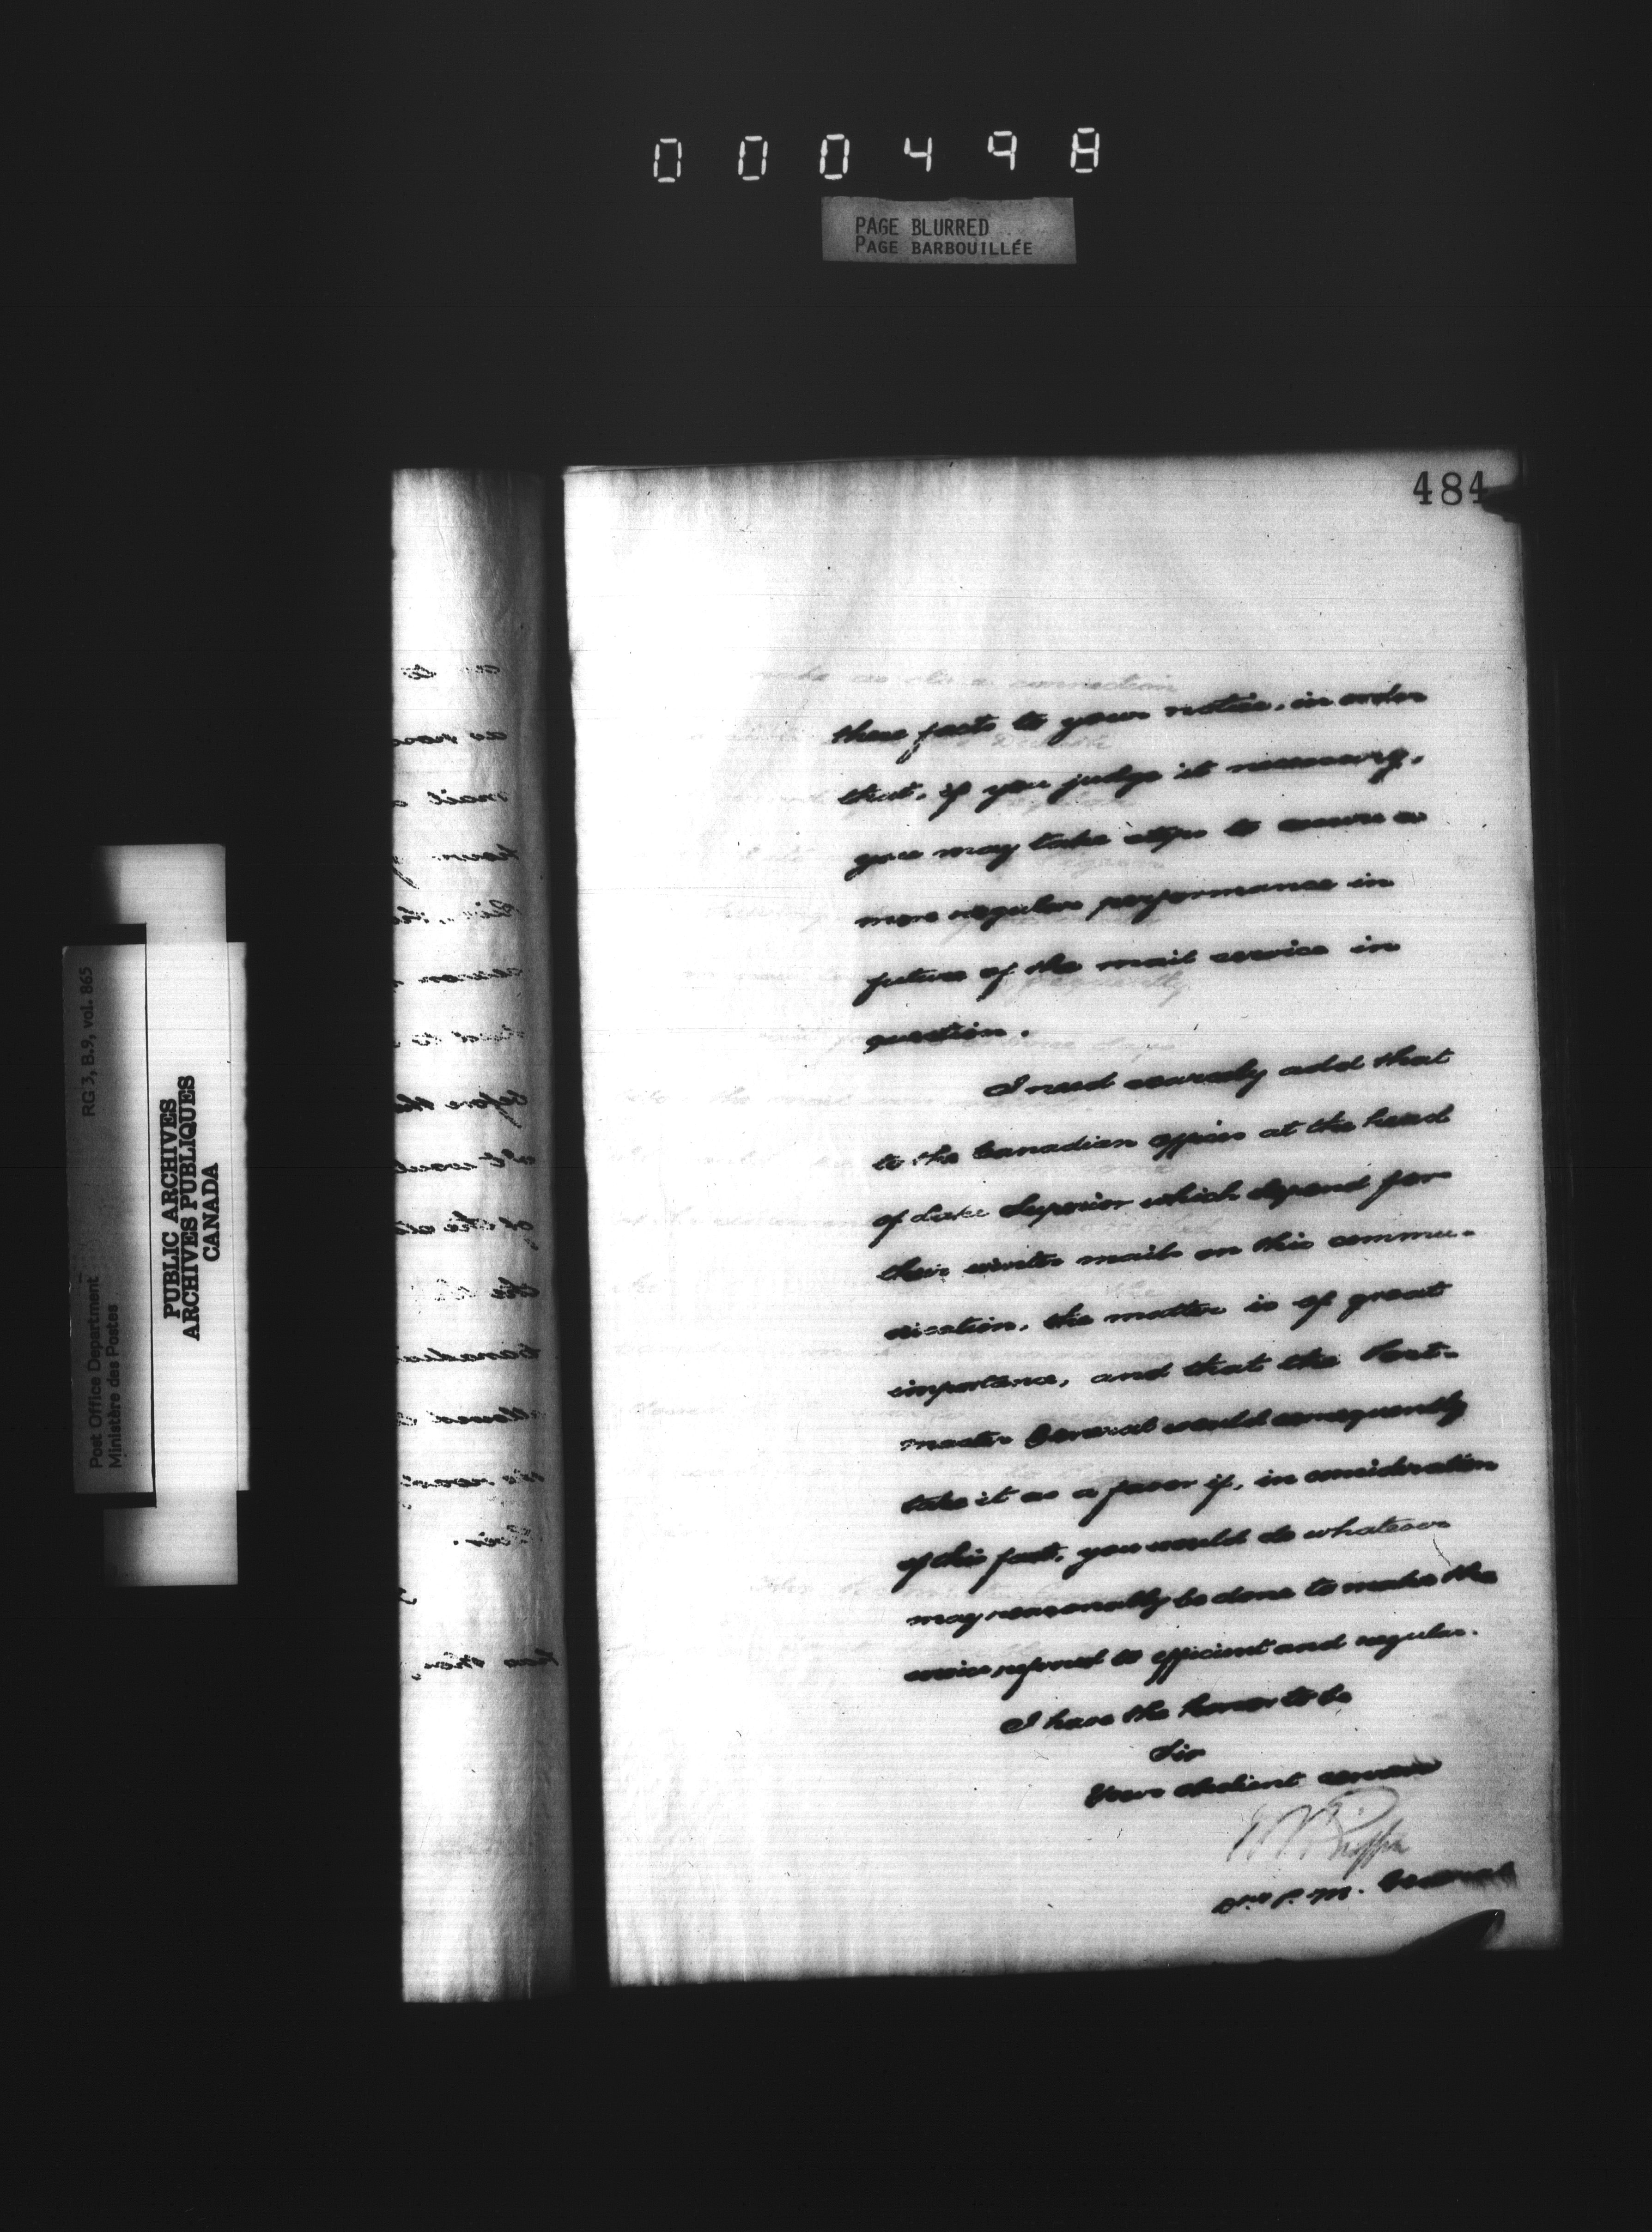 000498
PAGE BLURRED
PAGE BARBOUILLÉE
484
these facts to your notice, in order
that, if you judge it necessary,
you may take steps to ensure a
more regular performance in
future of the mail service in
question.
I need scarcely add that
to the Canadian offices at the head
of Lake Superior which depend for
their winter mails on this commu-
nication, the matter is of great
importance, and that the Post-
master General would consequently
take it as a favor if, in consideration
of this fact, you would do whatever
may reasonably be done to make the
service referred to efficient and regular.
I have the honor to be
Sir
Your obedient servant
P. M. General
RG 3, B.9, vol. 865
Post Office Department
Ministère des Postes
PUBLIC ARCHIVES
ARCHIVES PUBLIQUES
CANADA